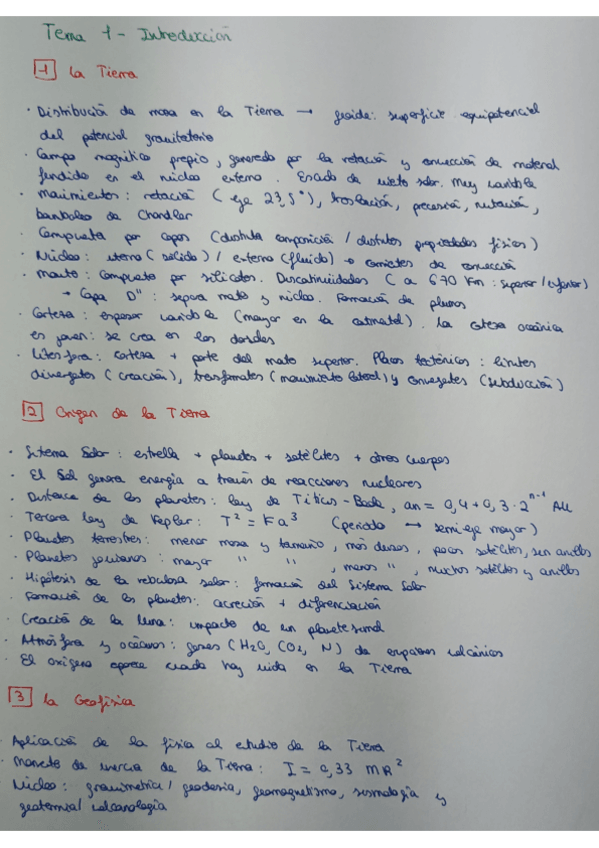 Tema 1 - Introducción
1 La Tierra
· Distribución de masa en la Tierra → geoide: superficie equipotencial
del potencial gravitatorio
· Campo magnético propio, generado por la rotación y convección de material
fundido en el núcleo externo. Escudo de viento solar. Muy variable
· Movimientos: rotación (eje 23,5°), traslación, precesión, nutación,
bamboleo de Chandler
· Compuesta por capas (distinta composición / distintas propiedades físicas)
· Núcleo: interno (sólido) / externo (fluido) → corrientes de convección
· Manto: compuesto por silicatos. Discontinuidades (a 670 Km: superior/inferior)
→ Capa D'': separa manto y núcleo. Formación de plumas
· Corteza: espesor variable (mayor en la continental). La corteza oceánica
es joven: se crea en las dorsales
· Litosfera: corteza + parte del manto superior. Placas tectónicas: límites
divergentes (creación), transformantes (movimiento lateral) y convergentes (subducción)
2 Origen de la Tierra
· Sistema Solar: estrella + planetas + satélites + otros cuerpos
· El Sol genera energía a través de reacciones nucleares
· Distancia de los planetas: ley de Titius-Bode, an = 0,4 + 0,3 · 2^n-1 AU
· Tercera ley de Kepler: T² = K a³ (periodo → semi-eje mayor)
· Planetas terrestres: menor masa y tamaño, más densos, pocos satélites, sin anillos
· Planetas jovianos: mayor " " , menos " , muchos satélites y anillos
· Hipótesis de la nebulosa solar: formación del Sistema Solar
· Formación de los planetas: acreción + diferenciación
· Creación de la luna: impacto de un planetesimal
· Atmósfera y océanos: gases (H2O, CO2, N) de erupciones volcánicas
· El oxígeno aparece cuando hay vida en la Tierra
3 La Geofísica
· Aplicación de la física al estudio de la Tierra
· Momento de inercia de la Tierra: I = 0,33 MR²
· Núcleo: gravimetría / geodesia, geomagnetismo, sismología y
geotermia/vulcanología